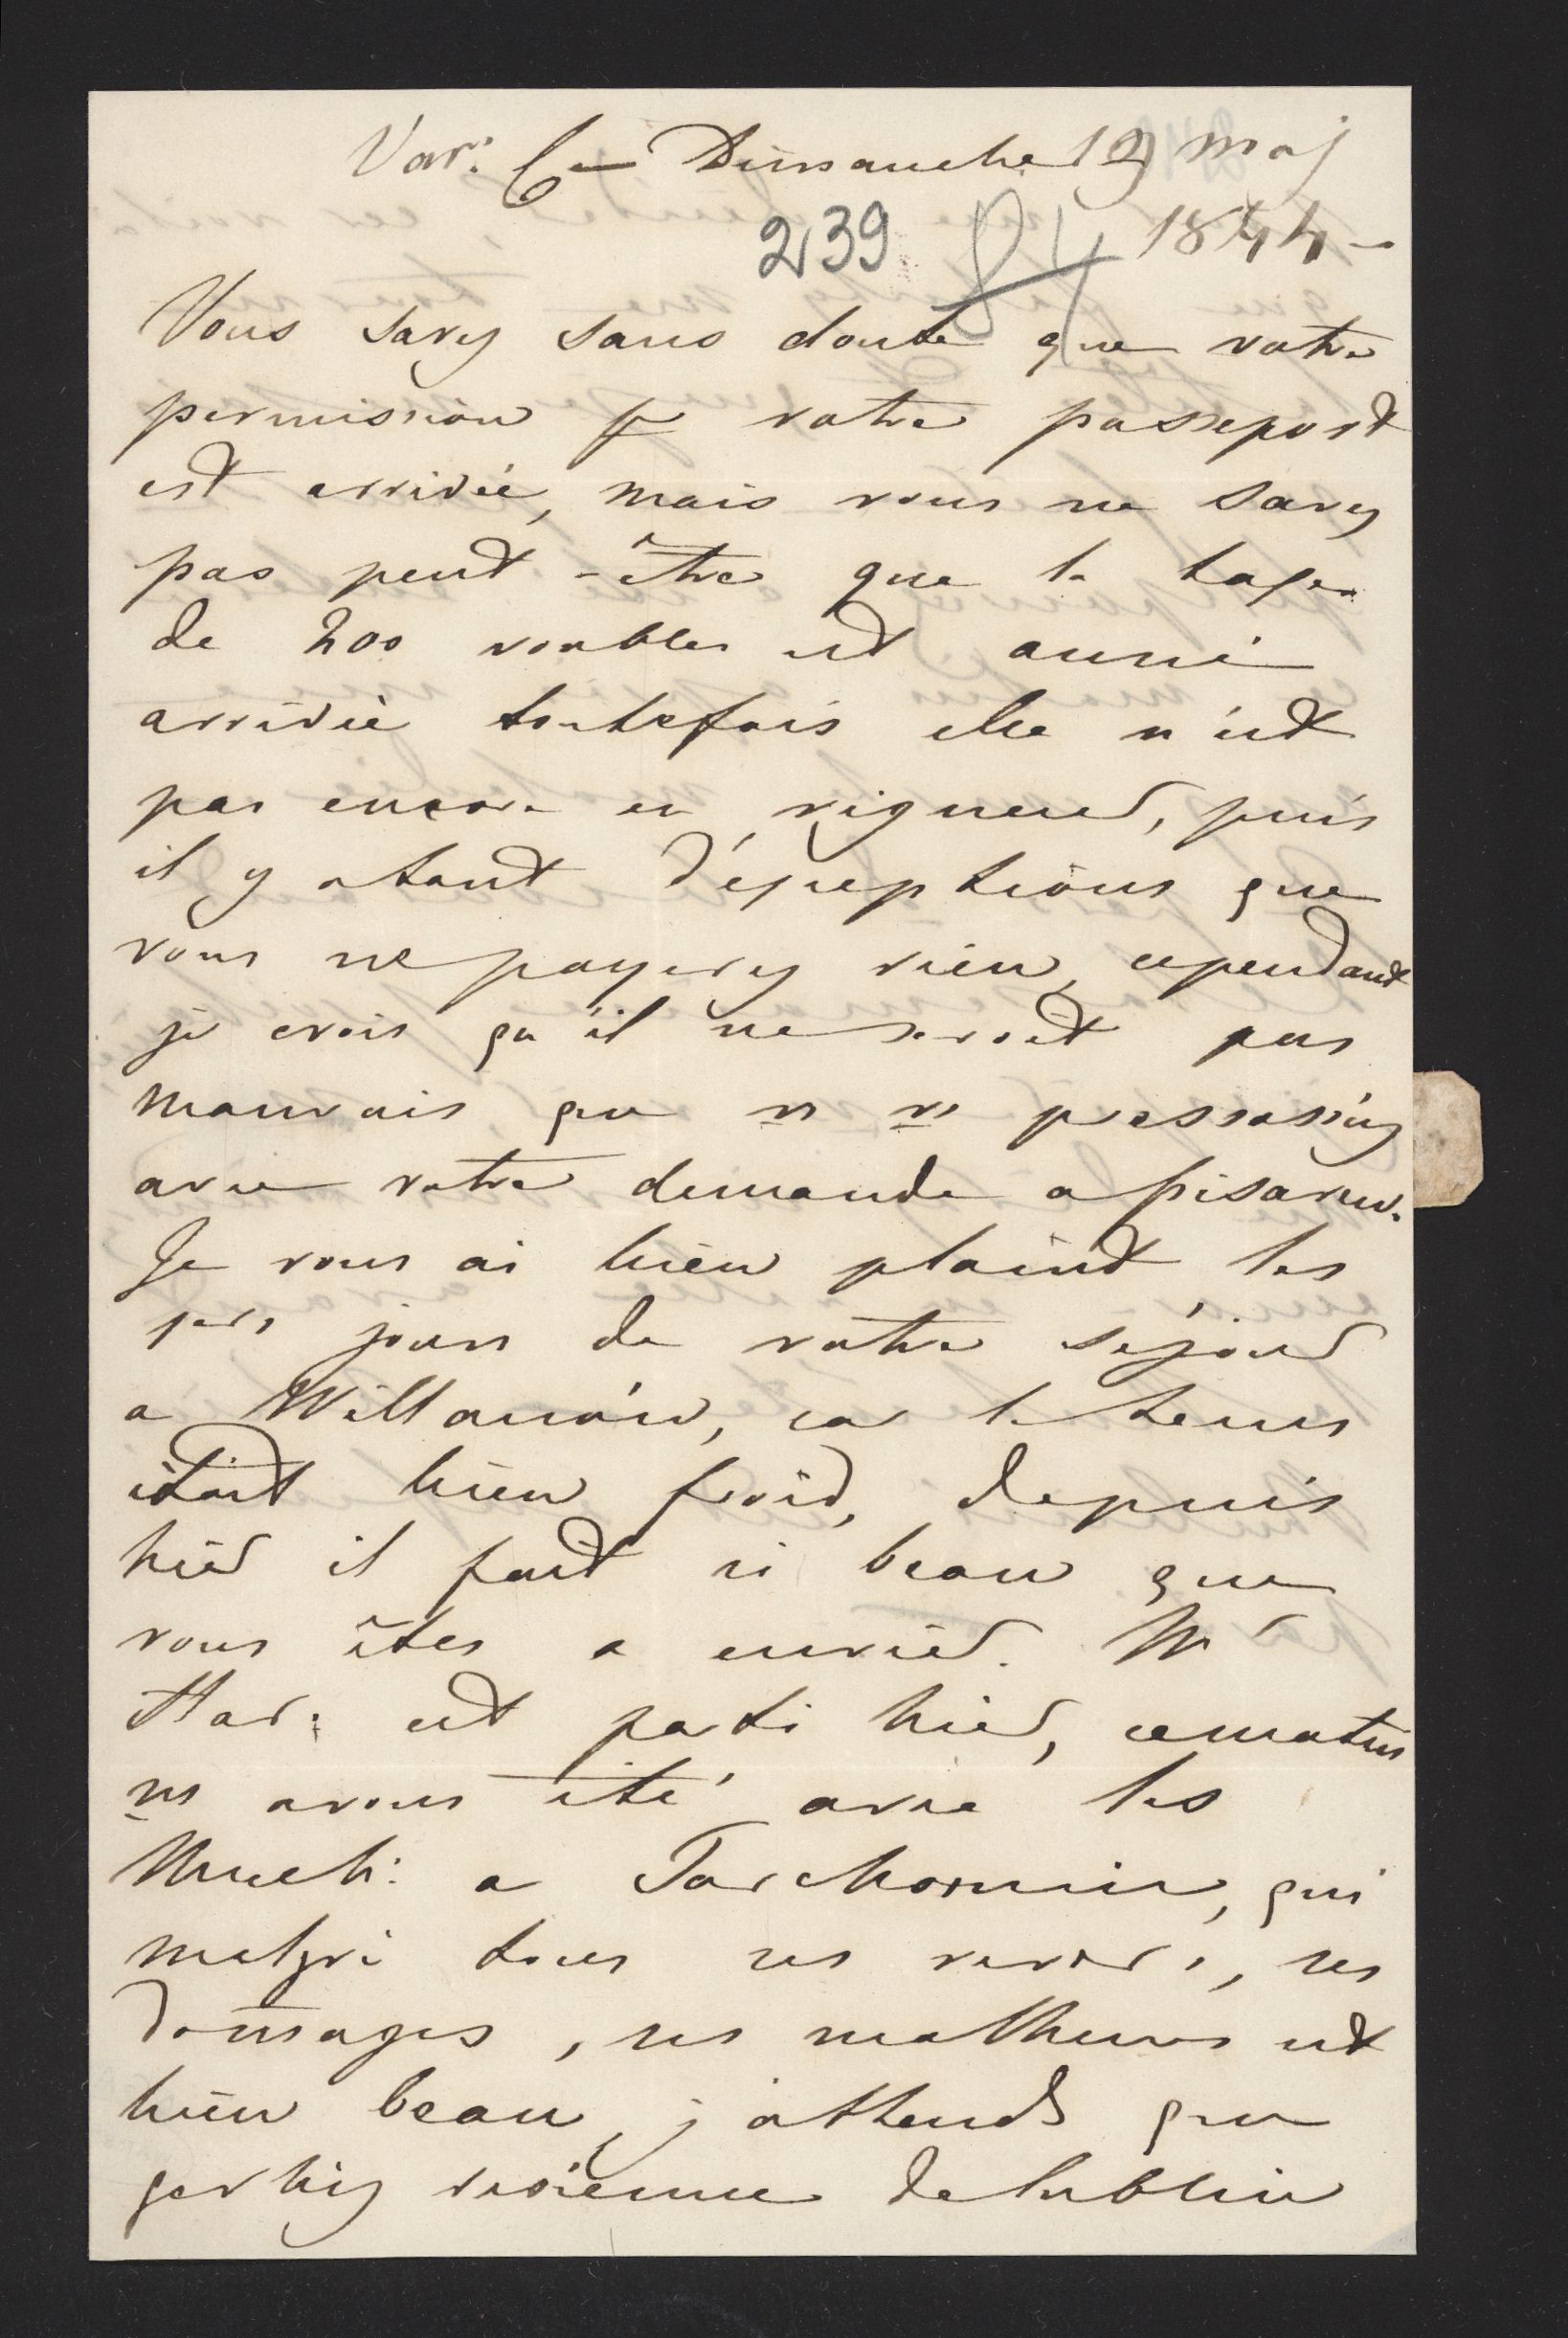 Var: Dimanche 19 maj
239 84 1844 -
Vous savez sans doute que votre
permission pr votre passeport
est arrivée, mais vous ne savez
pas peut-être que la taxe
de 200 roubles est aussi
arrivée toutefois elle n'est
pas encore en vigueur, puis
il y a tant d'exceptions que
vous ne payerez rien, cependant
je crois qu'il ne seroit pas
mauvais, que vs vs pressassiez
avec votre demande a Pisarew.
Je vous ai bien plaint les
1ers jours de votre séjour
a Willanów, car le tems
étoit bien froid, depuis
hier il fait si beau que
vous êtes a envier. Mr
Har: est parti hier, ce matin
ns avons été avec les
Much: a Tarchomin, qui
malgré tous ses revers, ses
domages, ses malheurs est
bien beau, j'attends que
revienne de Lublin